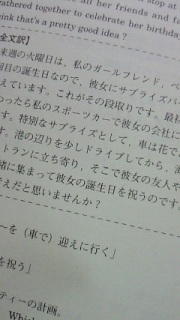 all her friends and fa
gathered together to celebrate her birthday
think that's a pretty good idea ?
全文訳】
来週の火曜日は、私のガールフレンド、ベ
回目の誕生日なので、彼女にサプライズパ
えています。これがその段取りです。最初
わったら私のスポーツカーで彼女の会社に
す。特別なサプライズとして、車は花で
す。港の辺りを少しドライブしてから、
トランに立ち寄り、そこで彼女の友人や
緒に集まって彼女の誕生日を祝うのです
考えだと思いませんか？
ーを（車で）迎えに行く」
を祝う」
ティーの計画。
Which